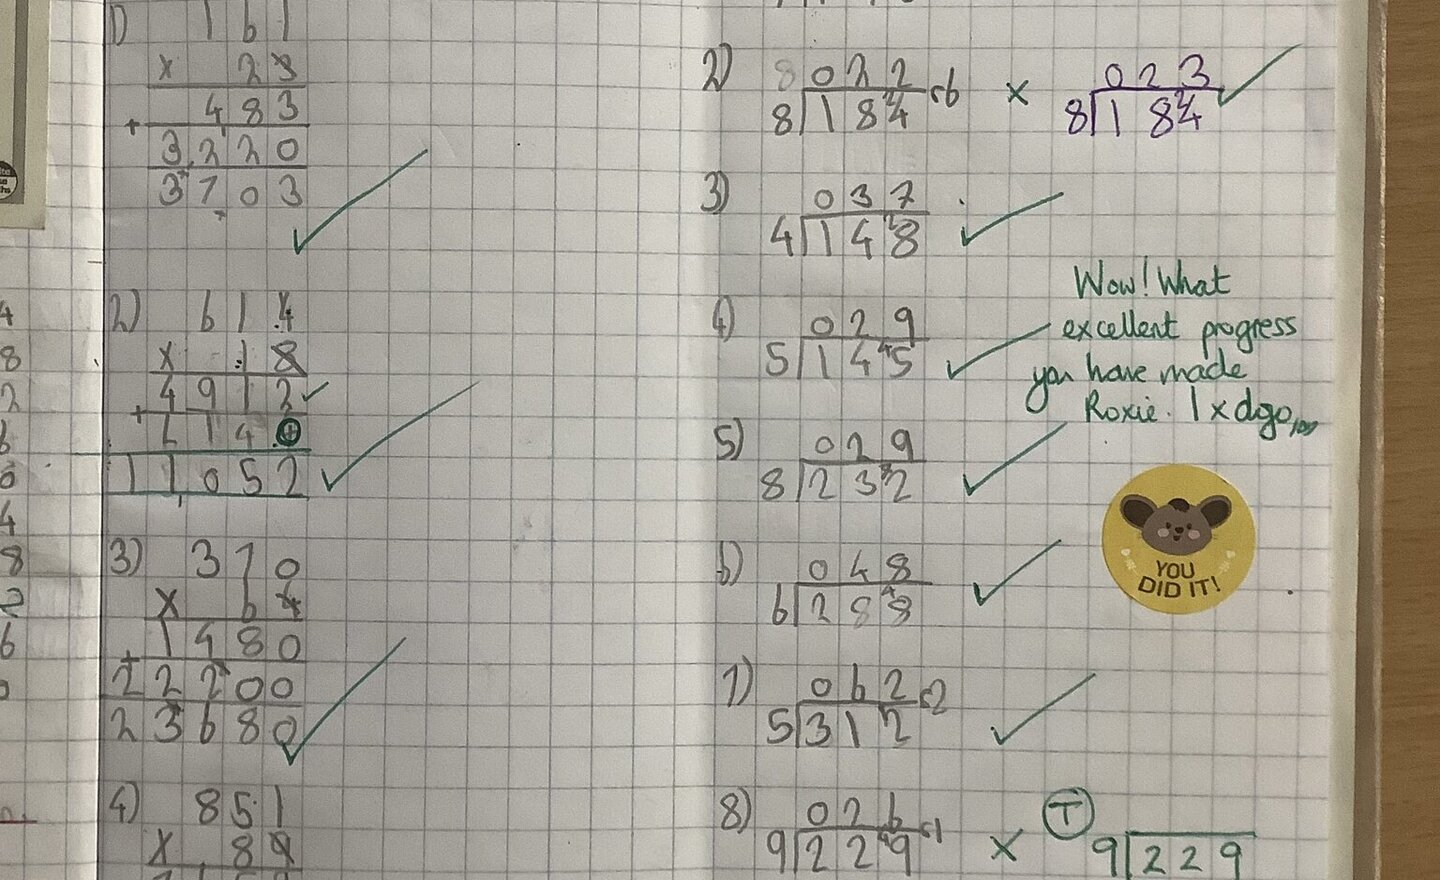 1) 161
x 23
483
+
3220
3703
2) 614
x 18
4912
+
6140
11052
3) 370
x 64
1480
+
22200
23680
4) 851
x 89
2) 8 022 r6
8 184
x
023
8 184
3) 037
4 148
4) 029
5 145
5) 029
8 232
6) 048
6 288
7) 062 r2
5 312
8) 026 r1
9 229
x
T
9 229
Wow! What
excellent progress
you have made
Roxie. 1 x dojo
YOU
DID IT!